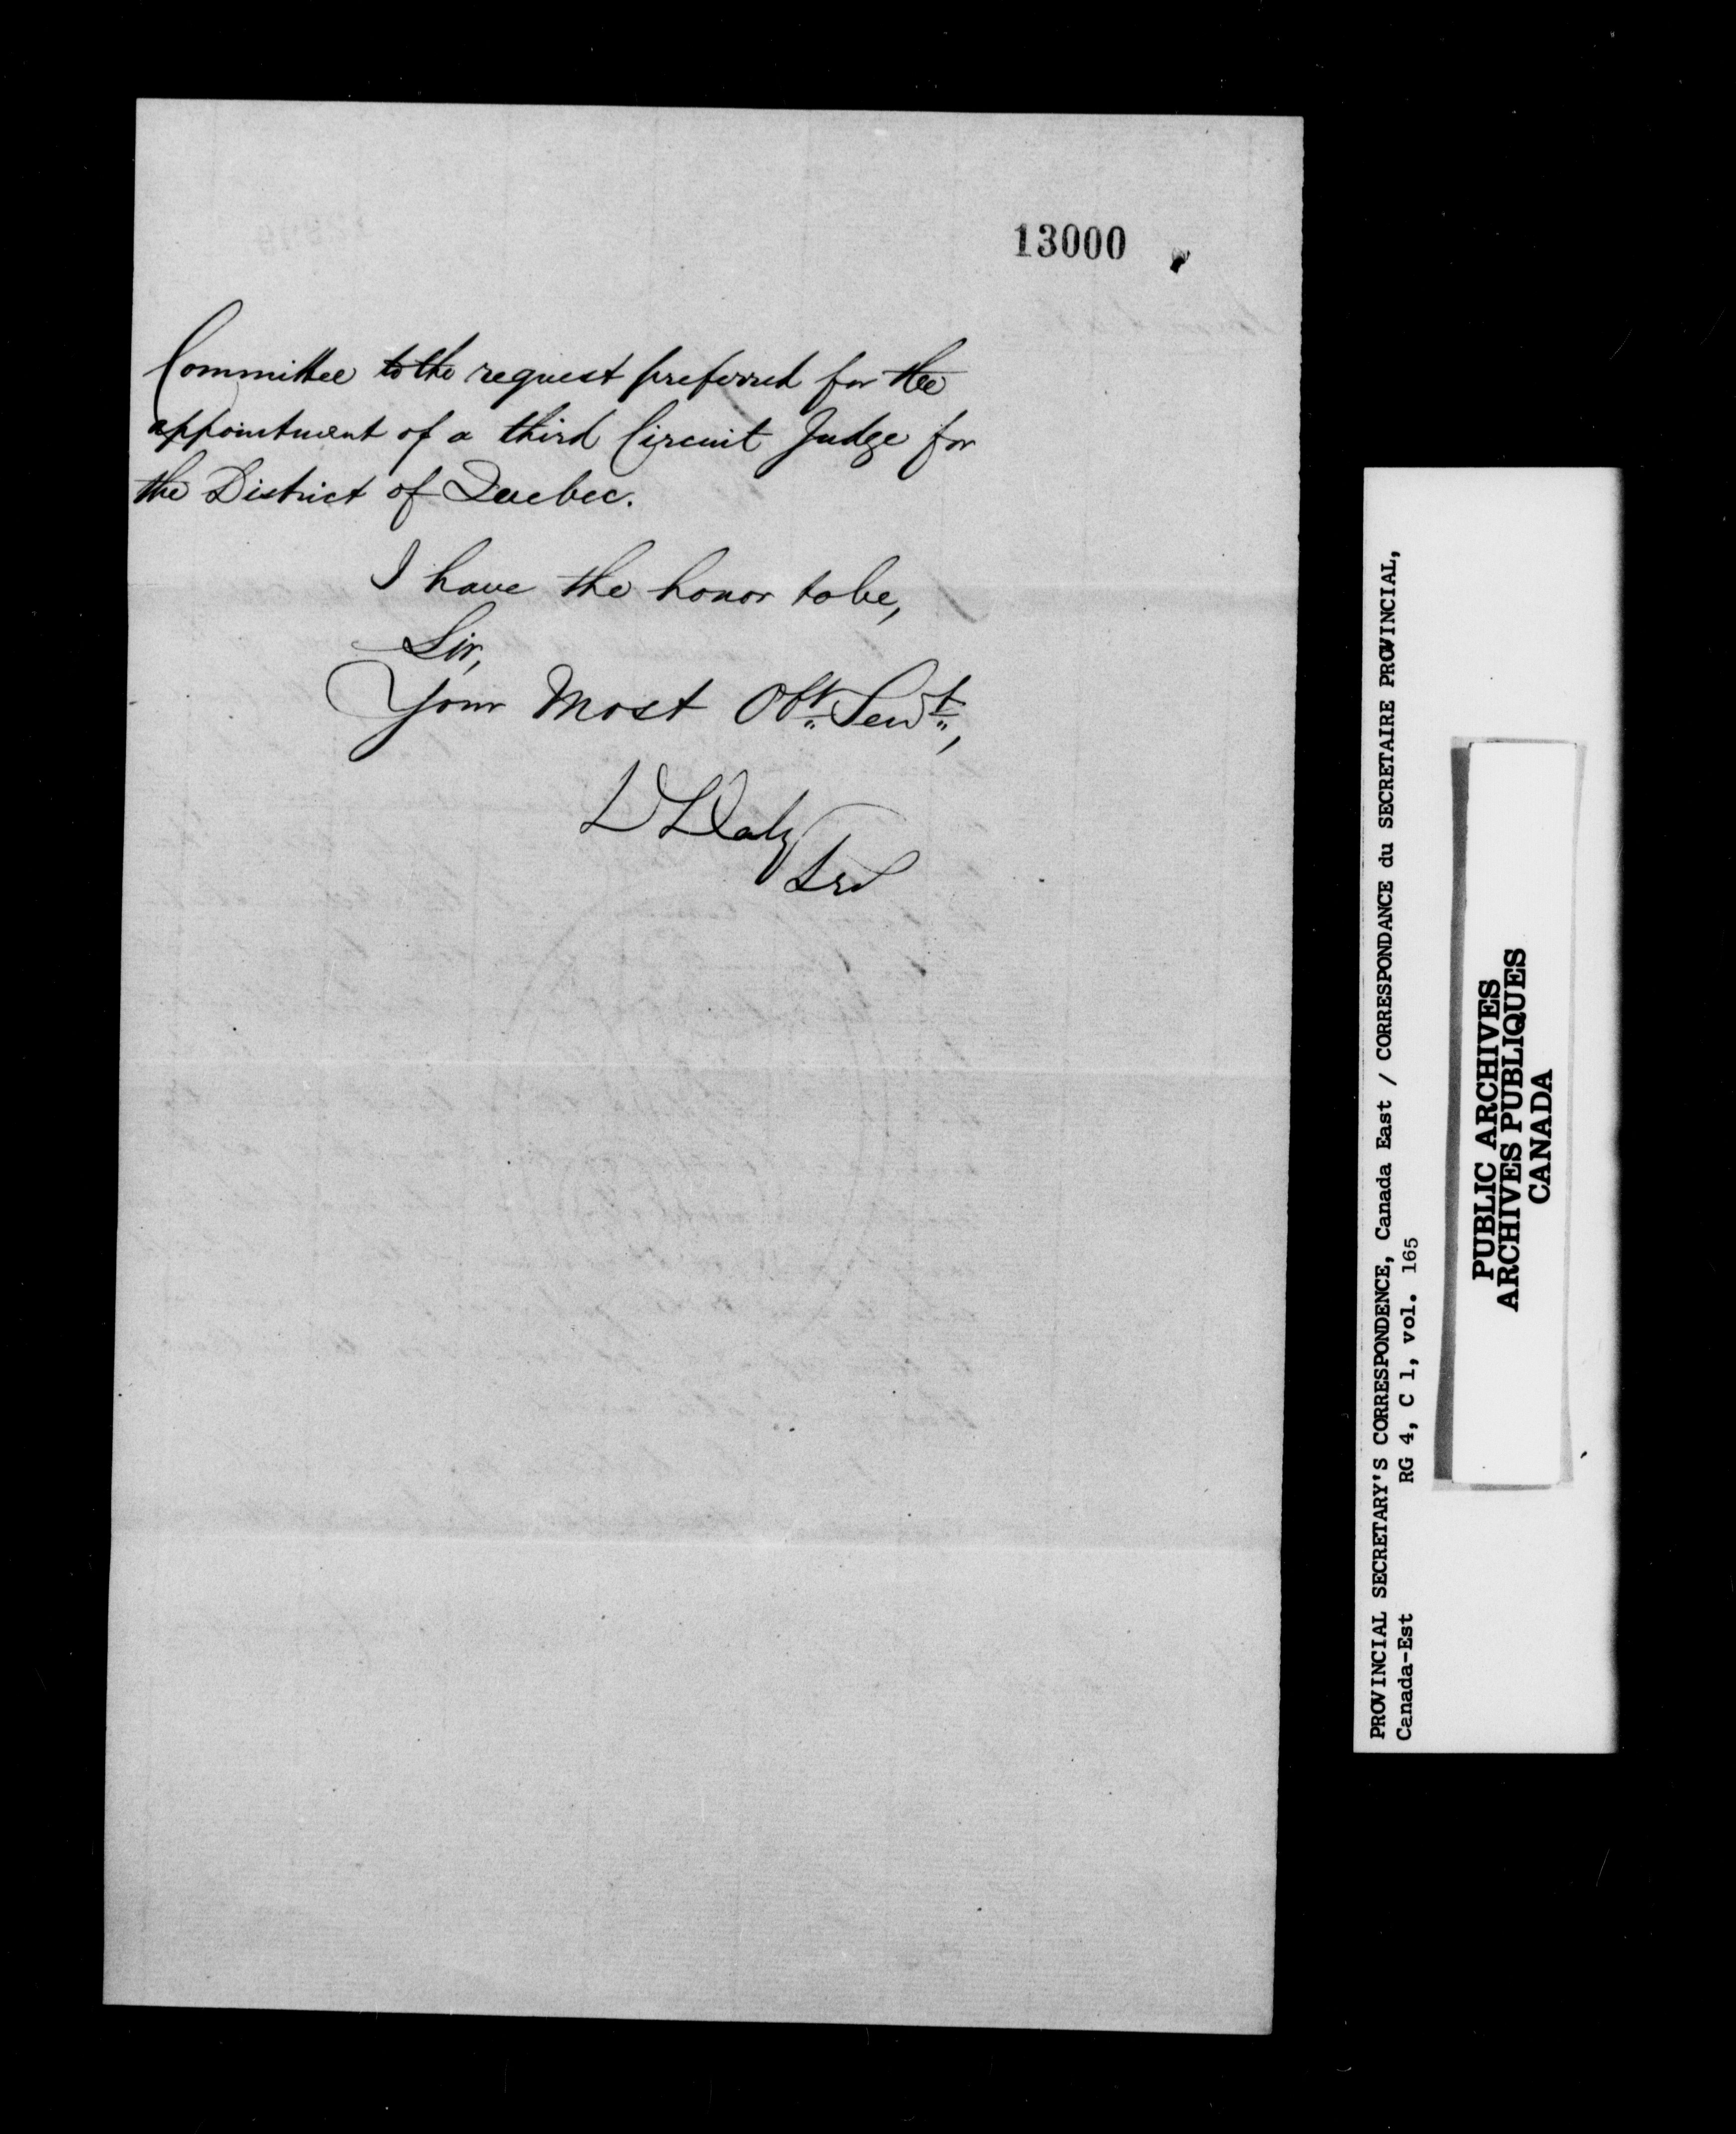 13000
Committee to the request preferred for the
appointment of a third Circuit Judge for
the District of Quebec.
I have the honor to be,
Sir,
Your Most Obt. Servt.,
D Daly
Sec
PROVINCIAL SECRETARY'S CORRESPONDENCE, Canada East / CORRESPONDANCE du SECRETAIRE PROVINCIAL,
Canada-Est RG 4, C 1, vol. 165
PUBLIC ARCHIVES
ARCHIVES PUBLIQUES
CANADA